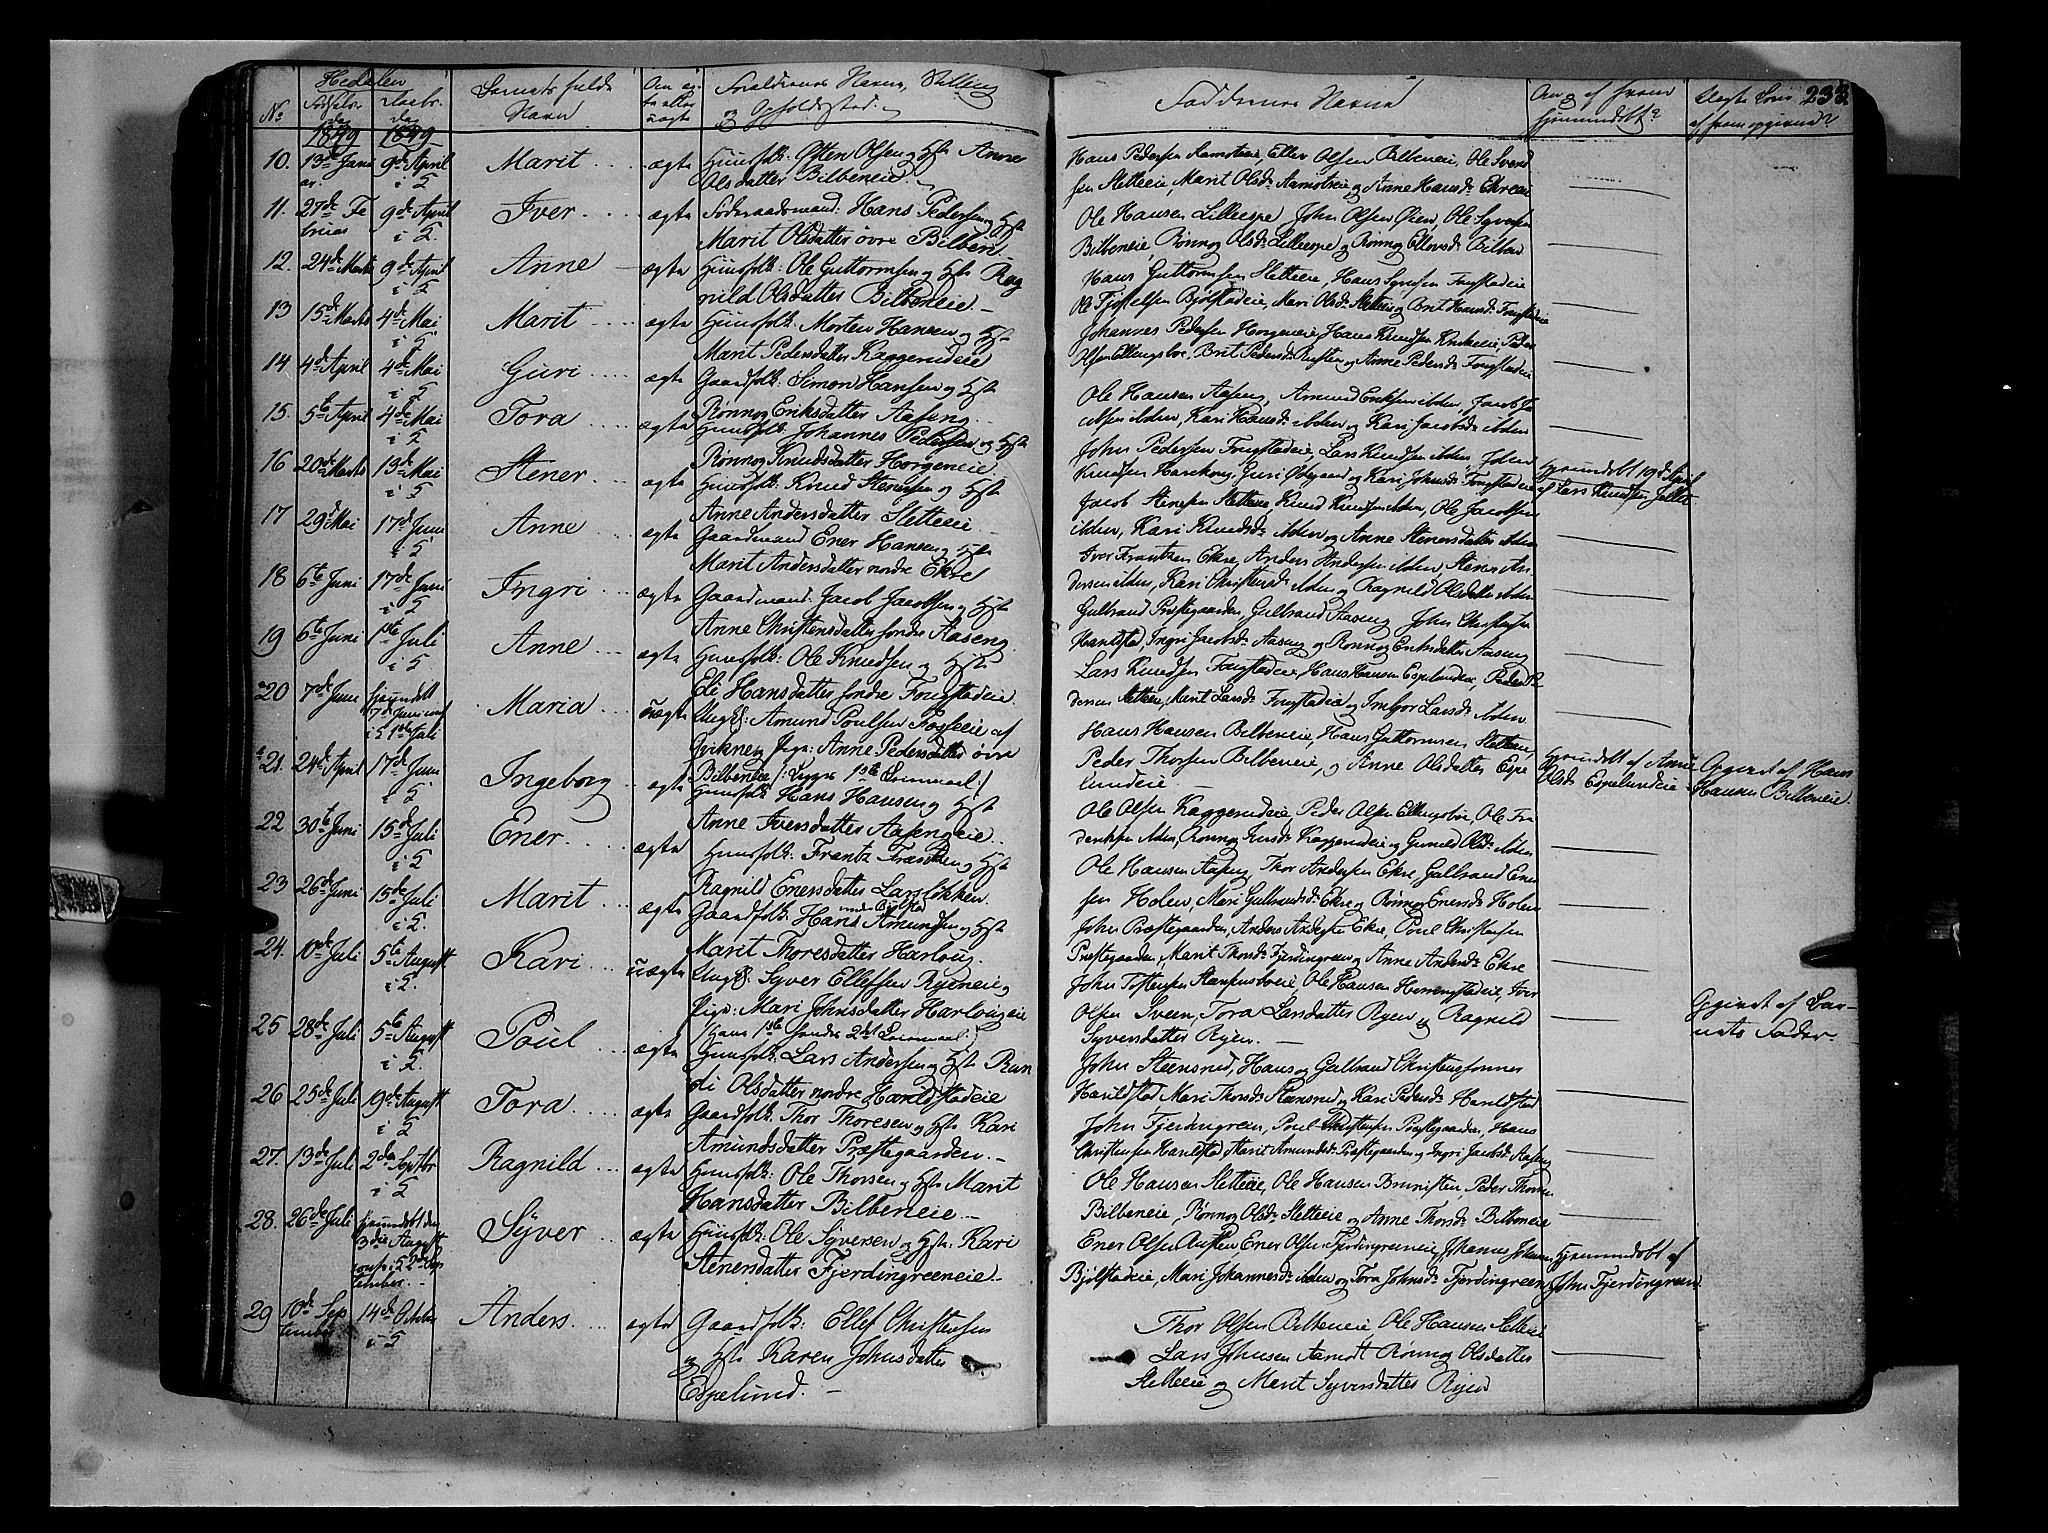 Hedalen
No
Fødsels-
dag
1849
Daabs-
dag
1849
Barnets fulde
Navn
Om æg-
te eller
uægte
Forældrenes Navne, Stilling
og Opholdssted
Faddernes Navne
Om og af hvem
hjemmedøbt?
Uægte
af hvem opgivne?
233.
10. 13de Janu
ar.
9de April
i 5
Marit
ægte
Huusfolk: Often Olsen og Hst Anne
Olsdatter Bilbeneie
Hans Pedersen Aamoteie, Ellev Olsen Bilbeneie, Ole Svend
sen Sletteeie, Marit Olsd: Aamotseie og Anne Hansd: Ekreeie
11. 27de Fe
bruar
9de April
i 5.
Iver
ægte
Føderaadsmand: Hans Pedersen og Hst
Marit Olsdatter øvre Bilben
Ole Hansen Lilleespe, John Olsen Øien, Ole Syversen
Bilbeneie, Rønnog Olsd: Lilleespe og Rønnog Ellevsd: Bilben
12. 24de Marts
9de April
i 5
Anne
ægte
Huusfolk: Ole Guttormsen og Hst Rag
nild Olsdatter Bilbeneie.
Hans Guttormsen Sletteeie, Hans Syversen Frugstadeie
Ole Kjøstelsen Bjølstadeie, Mari Olsd: Sletteeie og Brit Hansd: Frugstadeie
13 15de Marts
4de Mai
i 5
Marit
ægte
Huusfolk: Morten Hansen og Hst
Marit Pedersdatter Kaggerudeie
Johannes Pedersen Horgeneie, Hans Knudsen Kirkeeie, Peder
Olsen Ellingsbø, Brit Pedersd: Rusten og Anne Pedersd: Frugstadeie
14 4de April
4de Mai
i 5
Guri
ægte
Gaardfolk: Simon Hansen og Hst
Rønnog Eriksdatter Aaseng
Ole Hansen Aaseng, Amund Eriksen ibden, Jacob Ja
cobsen ibden, Kari Hansd: ibden og Kari Jacobsd: ibden
15. 5te April
4de Mai
i 5
Tora
ægte
Huusfolk Johannes Pedersen og Hst
Rønnog Knudsdatter Horgeneie
John Pedersen Frugstadeie, Lars Knudsen ibden, John
Knudsen Harloug, Guri Ødegaard og Kari Johnsd: Frugstadeie
16 20de Marts
13de Mai
i 5
Stener
ægte
Huusfolk: Knud Stenersen og Hst
Anne Andersdatter Sletteeie
Jacob Stenersen Sletteeie, Knud Knudsen ibden, Ole Jacobsen
ibden, Kari Knudsd: ibden og Anne Stenersdatter ibden
Hjemmedøbt 19de April
af Lars Knudsen
17 29de Mai
17de Juni
i 5
Anne
ægte
Gaardmand Ener Hansen og Hst
Marit Andersdatter nordre Ekre
Iver Frantzen Ekre, Anders Andersen ibden, Stener An
dersen ibden, Kari Christensd: ibden og Ragnild Olsdatter ibden
18 6te Juni
17de Juni
i 5
Ingri
ægte
Gaardmand: Jacob Jacobsen og Hst
Anne Christensdatter søndre Aaseng
Gulbrand Præstegaarden, Gulbrand Aaseng, John Christensen
Harildstad, Ingri Jacobsd: Aaseng og Rønnog Eriksdatter Aaseng
19 6te Juni
1ste Juli
i 5
Anne
ægte
Huusfolk: Ole Knudsen og Hst
Eli Hansdatter søndre Frugstadeie
Lars Knudsen Frugstadeie, Hans Hansen Espelundeie, Peder Pe
dersen Sletteeie, Marit Larsd: Frugstadeie og Imbjør Larsd: ibden
20 7de Juni
hjemmedøbt
7de Juni conf
i 5 1ste Juli
Maria
uægte
Ungk: Amund Poulsen Fossheie af
Qvikne og Pige: Anne Pedersdatter øvre
Bilbeneie /: begges 1ste Leiermaal:/
Hans Hansen Bilbeneie, Hans Guttormsen Sletteeie,
Peder Thorsen Bilbeneie, og Anne Olsdatter Espe
lundeie.
Hjemmedøbt af Anne
Olsd: Espelundeie
Opgivet af Hans
Hansen Bilbeneie.
21. 24de April
17de Juni
i 5
Ingeborg
ægte
Huusfolk Hans Hansen og Hst
Anne Iversdatter Aasengeie
Ole Olsen Kaggerudeie, Peder Olsen Ellingsbø, Ole Fre
deriksen ibden, Rønnog Hansd: Kaggerudeie og Gunild Olsd: ibden
22 30te Juni
15de Juli
i 5
Ener
ægte
Huusfolk: Frantz Frantzen og Hst
Ragnild Enersdatter Larsløkken
under Bjølstad
Ole Hansen Aaseng, Thor Andersen Ekre, Gulbrand Ener
sen Holen, Mari Gulbrandsd: Ekre og Rønnog Enersd: Holen
23 26de Juni
15de Juli
i 5.
Marit
ægte
Gaardfolk: Hans Amundsen og Hst
Marit Thoresdatter Harloug.
John Præstegaarden, Anders Andersen Ekre, Poul Christensen
Præstegaarden, Marit Thorsd: Fjerdingreen og Anne Andersd: Ekre
24. 10de Juli
5te August
i 5.
Kari
uægte
Ungk: Syver Ellefsen Ryeneie og
Pige: Mari Johnsdatter Harlougeie
(hans 1ste hendes 2det Leiermaal)
John Tostensen Stenhusbveie, Ole Hansen Hommgstadeie, Iver
Olsen Sveen, Tora Larsdatter Ryen og Ragnild
Syversdatter Ryen.
Opgivet af Bar-
nets Fader.
25 28de Juli
5te August
i 5.
Poul
ægte
Huusfolk: Lars Andersen og Hst Run
di Olsdatter nordre Harildstadeie
John Steensrud, Hans og Gulbrand Christensønner
Harildstad, Mari Thorsd: Steensrud og Kari Pedersd: Harildstad
26 25de Juli
19de August
i 5
Tora
ægte
Gaardfolk: Thor Thoresen og Hst Kari
Amundsdatter Præstegaarden.
John Fjerdingreen, Poul Christensen Præstegaarden, Hans
Christensen Harildstad, Marit Amundsd: Præstegaarden og Ingri Jacobsd: Aaseng
27. 13de Juli
2den Septbr
i 5
Ragnild
ægte
Huusfolk: Ole Thorsen og Hst Marit
Hansdatter Bilbeneie
Ole Hansen Sletteeie, Ole Hansen Brunisten, Peder Thorsen
Bilbeneie, Rønnog Olsd: Sletteeie og Anne Thorsd: Bilbeneie
28. 26de Juli
hjemmedøbt den
3die August
conf: i 5 2den Sep
tember.
Syver
ægte
Huusfolk: Ole Syversen og Hst: Kari
Stenersdatter Fjerdingreeneie
Ener Olsen Rusten, Ener Olsen Fjerdingreeneie, Johannes Johnsen
Bjølstadeie, Mari Johannesd: ibden og Tora Johnsd: Fjerdingreen
Hjemmedøbt af
John Fjerdingreen.
29 10de Sep
tember
14de October
i 5
Anders
ægte
Gaardfolk: Ellef Christensen
og Hst Karen Johnsdatter
Espelund.
Thor Olsen Bilbeneie, Ole Hansen Sletteeie
Lars Johnsen Aamodt Rønnog Olsdatter
Sletteeie og Marit Syversdatter Ryen